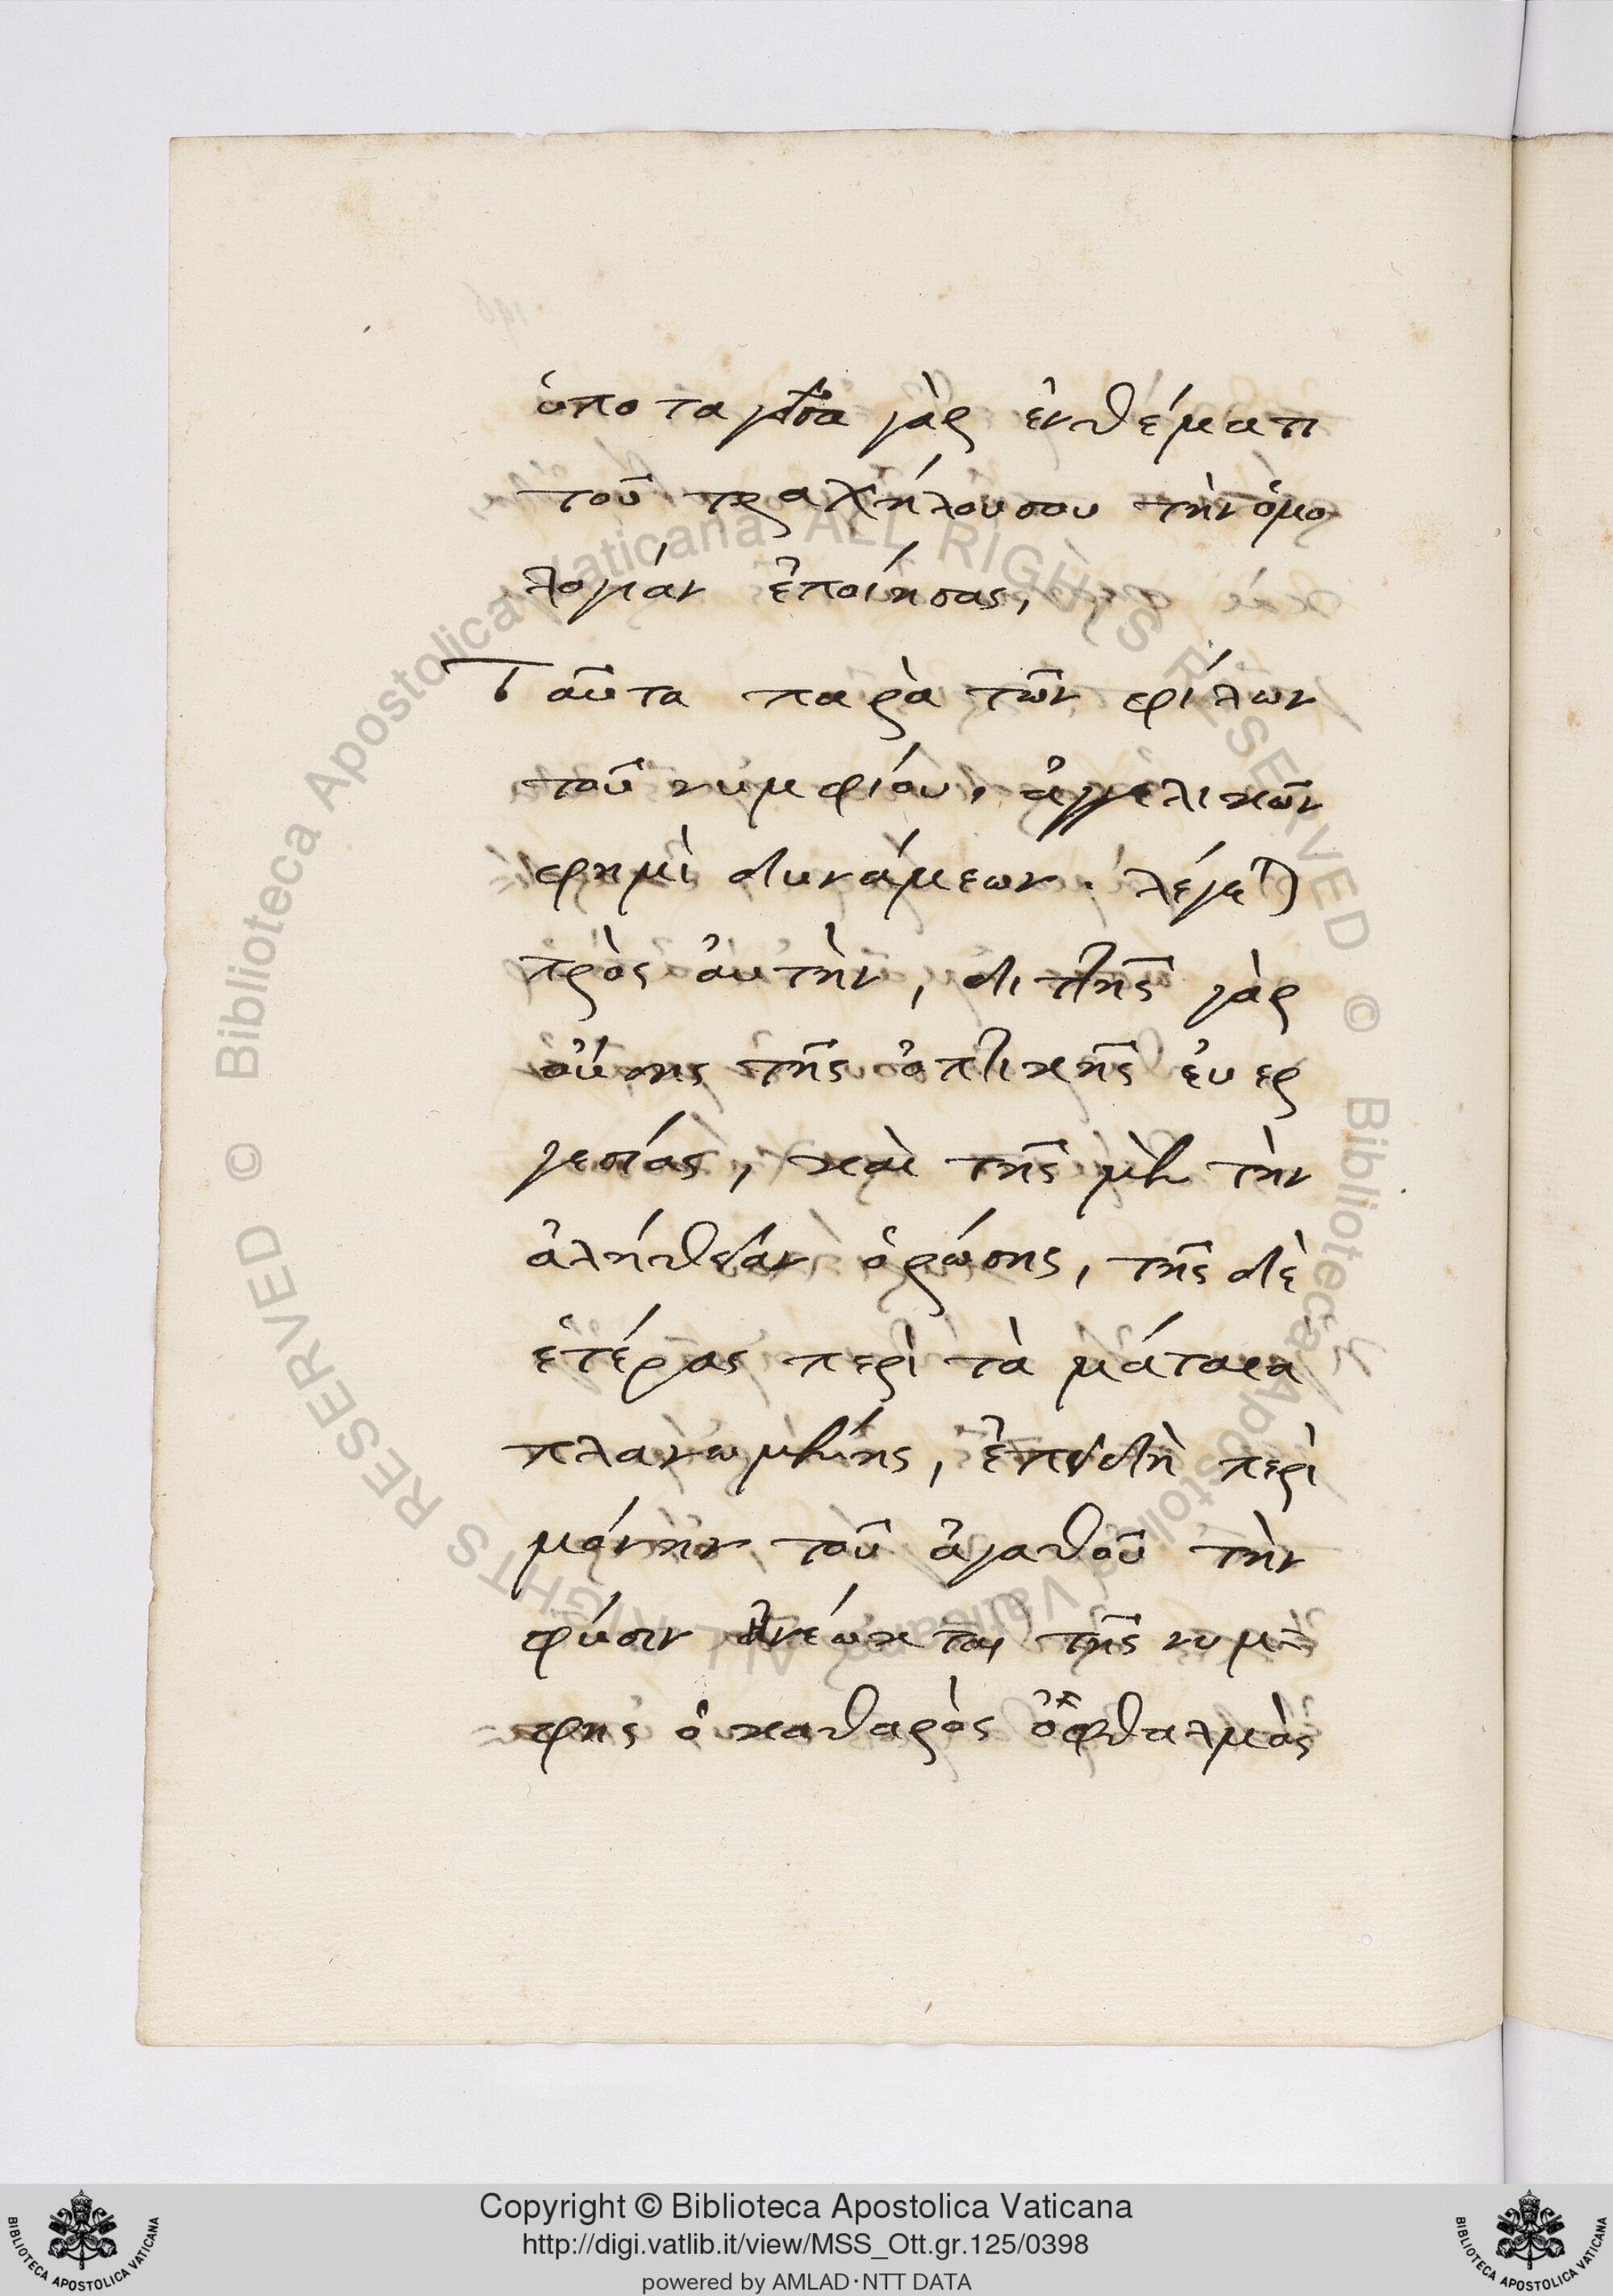 ὑποταγεῖσα γὰρ ἐνθέματι
τοῦ τραχήλου σου τὴν ὁμο
λογίαν ἐποίησας,
Ταῦτα παρὰ τῶν φίλων
τοῦ νυμφίου, ἀγγελικῶν
φημὶ δυνάμεων. λέγεται
πρὸς ἀυτὴν, διπλῆς γὰρ
οὔσης τῆς ὀπτικῆς ἐυερ
γεσίας, καὶ τῆς μὲν τὴν
ἀλήθειαν ὁρώσης, τῆς δὲ
ἑτέρας περὶ τὰ μάταια
πλανωμένης, ἐπειδὴ περὶ
μόνην τοῦ ἀγαθοῦ τὴν
φύσιν ἀνέωκται τῆς νυμ-
φης ὁ καθαρὸς ὀφθαλμὸς
Copyright © Biblioteca Apostolica Vaticana
http://digi.vatlib.it/view/MSS_Ott.gr.125/0398
powered by AMLAD·NTT DATA
BIBLIOTECA APOSTOLICA VATICANA
BIBLIOTECA APOSTOLICA VATICANA
© Biblioteca Apostolica Vaticana ALL RIGHTS RESERVED © Biblioteca Apostolica Vaticana ALL RIGHTS RESERVED